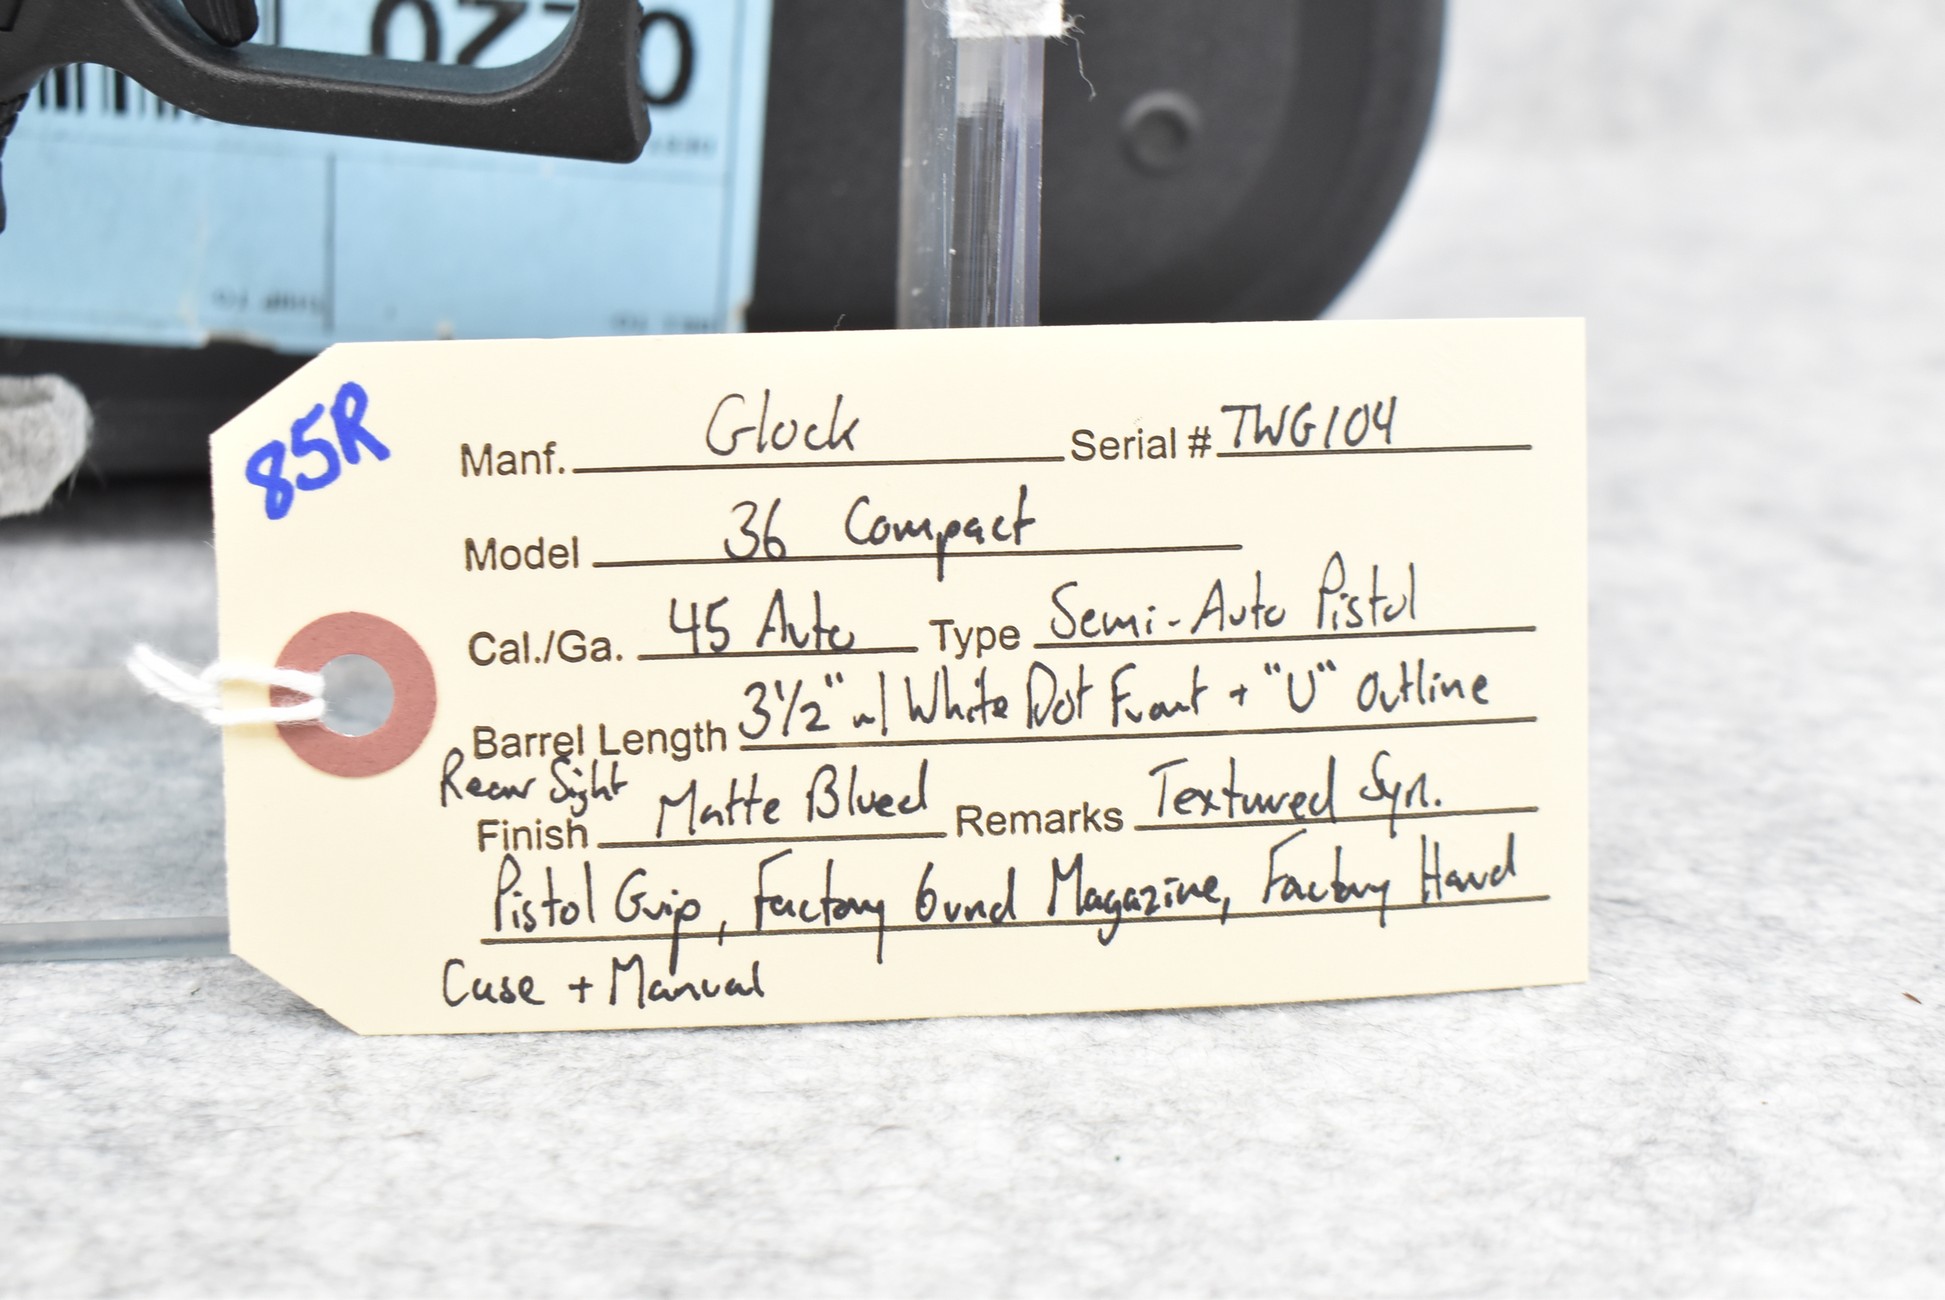 0220
85R
Manf. Glock Serial # TWG104
Model 36 Compact
Cal./Ga. 45 Auto Type Semi-Auto Pistol
Barrel Length 3 1/2" w/ White Dot Front + "U" Outline
Rear Sight
Finish Matte Blued Remarks Textured Syn.
Pistol Grip, Factory 6rnd Magazine, Factory Hard
Case + Manual